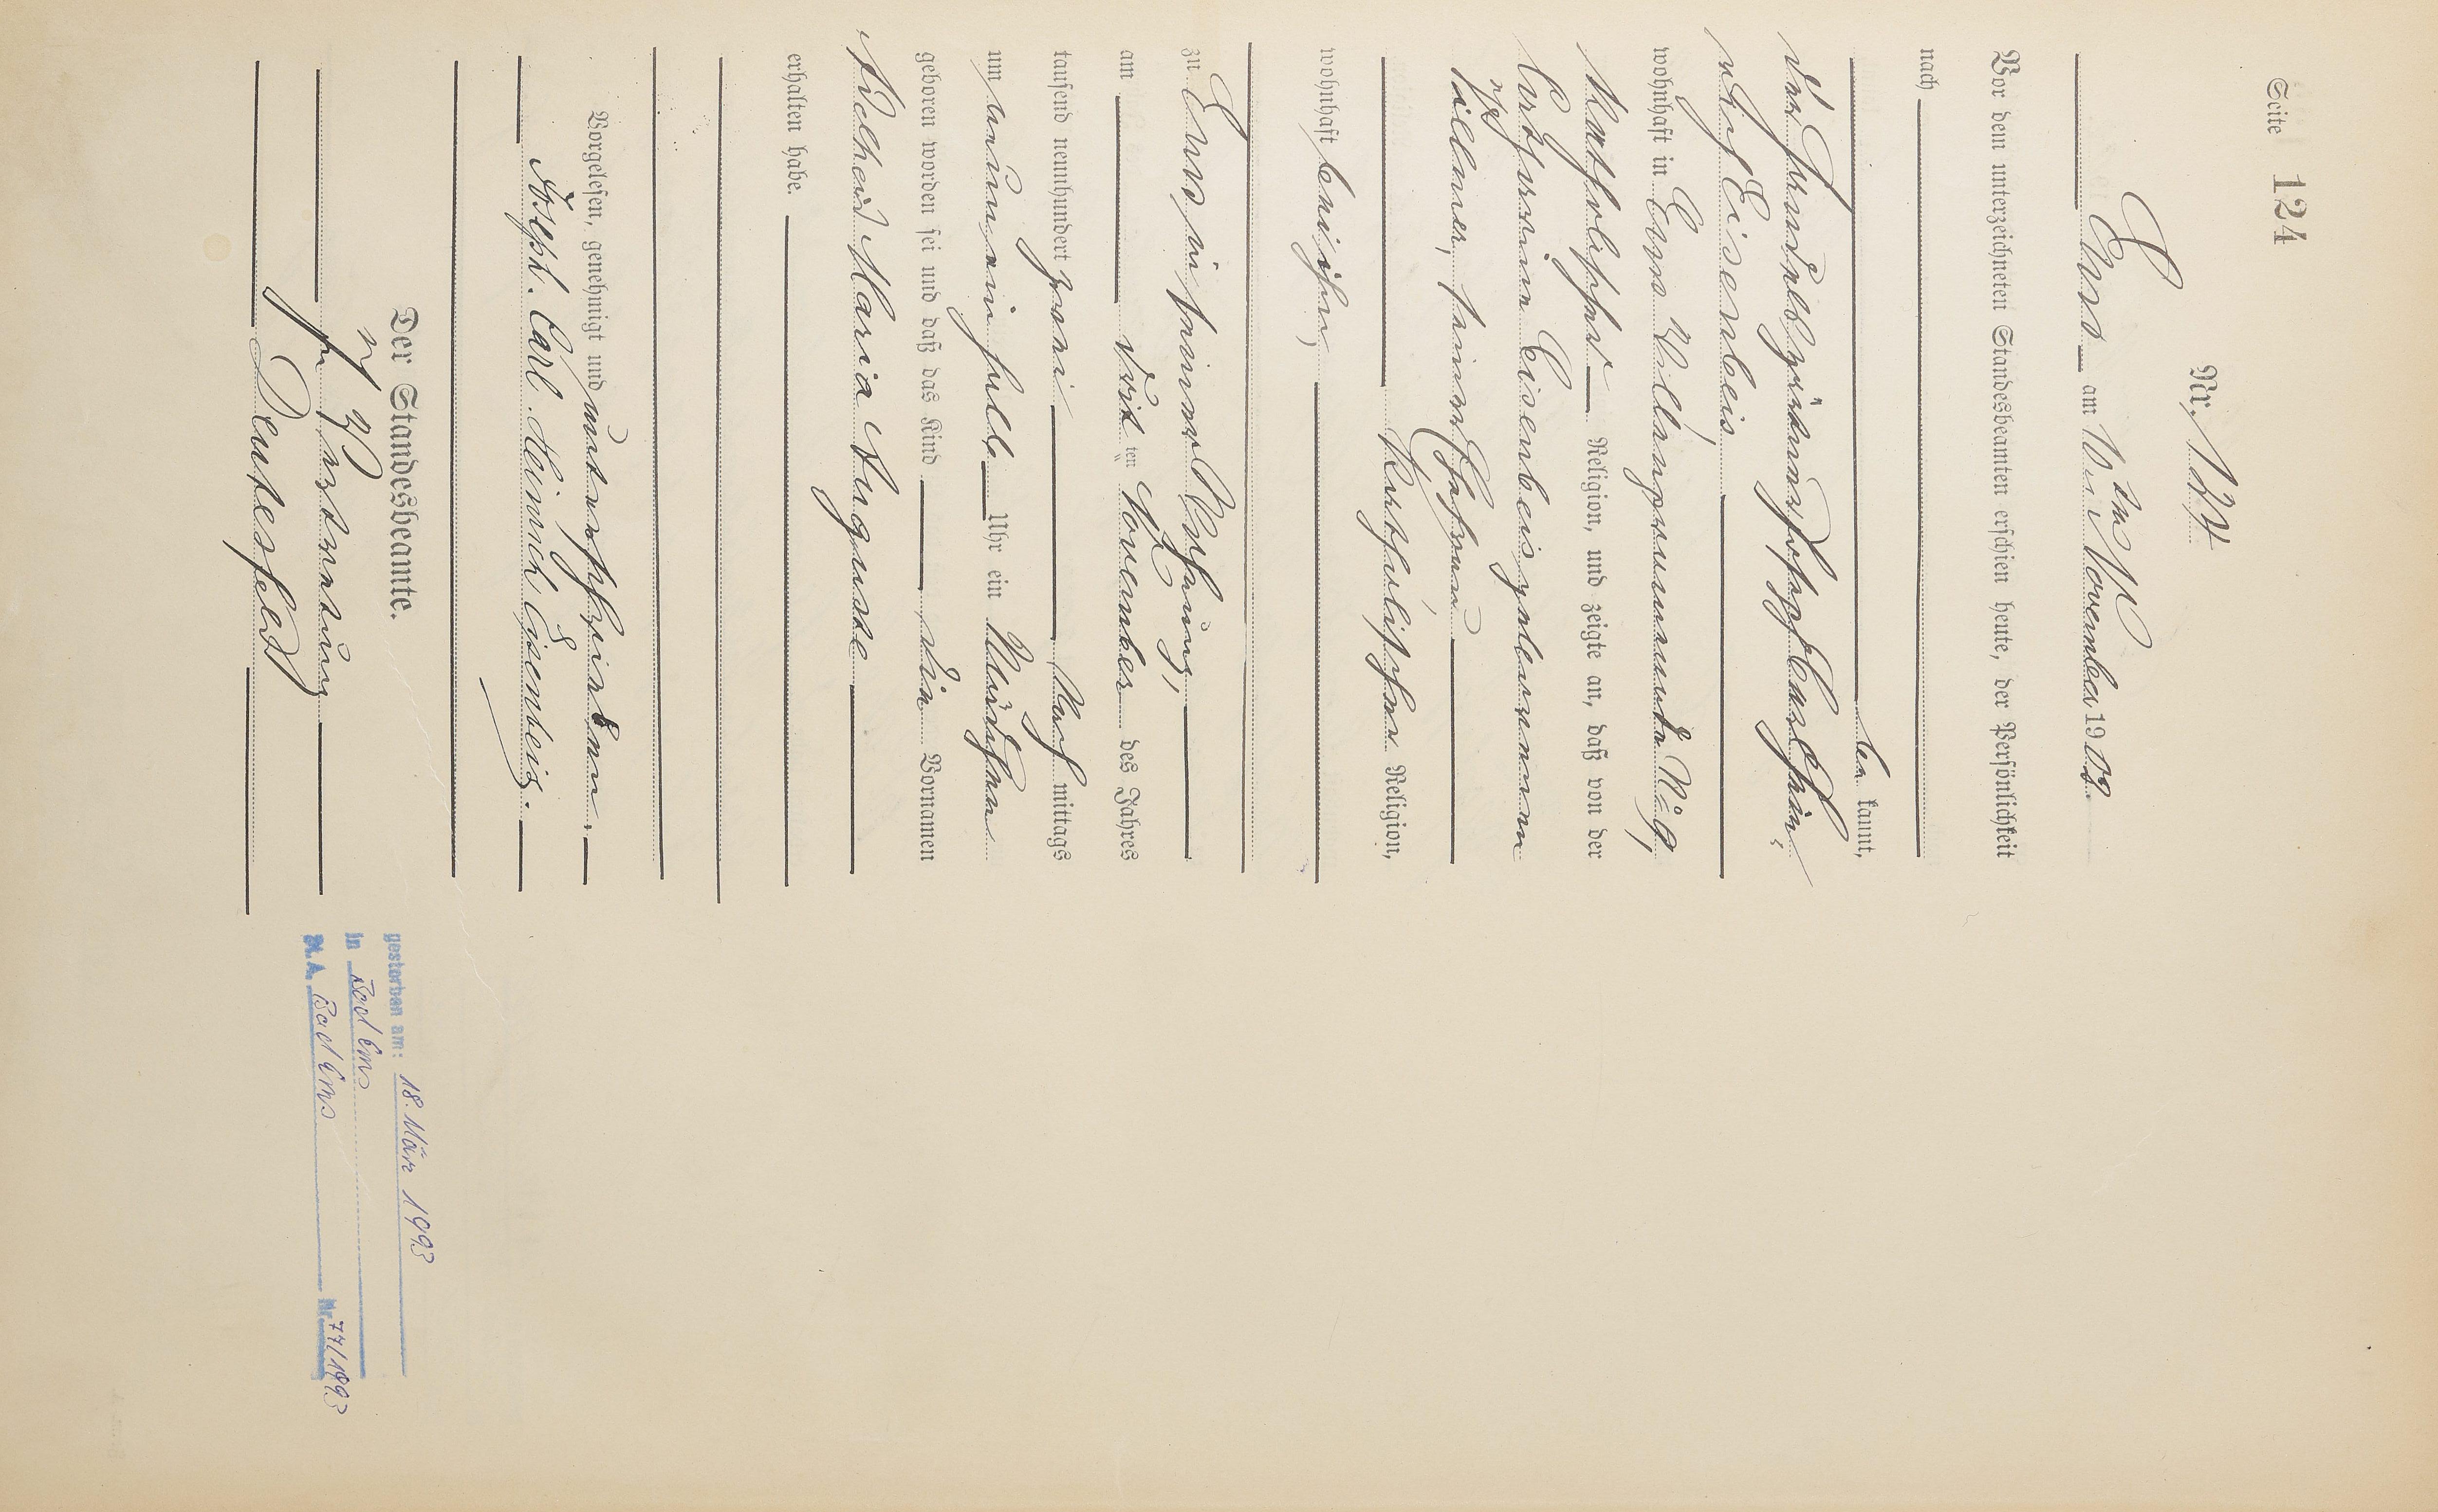 Seite 124
Nr. 124
Ems am 10ten November 1902.
Vor dem unterzeichneten Standesbeamten erschien heute, der Persönlichkeit
nach
be kannt,
der Handelsgärtner Joseph Carl Hein-
rich Eisenbeis
wohnhaft in Ems,
Katholischer Religion, und zeigte an, daß von der
Catharine Eisenbeis geborenen
seiner Ehefrau
Katholischer Religion,
wohnhaft bei ihm,
zu Ems in seiner Wohnung,
am ten November des Jahres
tausend neunhundert zwei Nach mittags
um neun ein halb Uhr ein Mädchen
geboren worden sei und daß das Kind die Vornamen
Adelheid Maria Auguste
erhalten habe.
Vorgelesen, genehmigt und unterschrieben.
Joseph Carl Heinrich Eisenbeis.
Der Standesbeamte.
In Vertretung
gestorben am: 18. März 1993
in Bad Ems
St.A. Bad Ems Nr. 74/1993